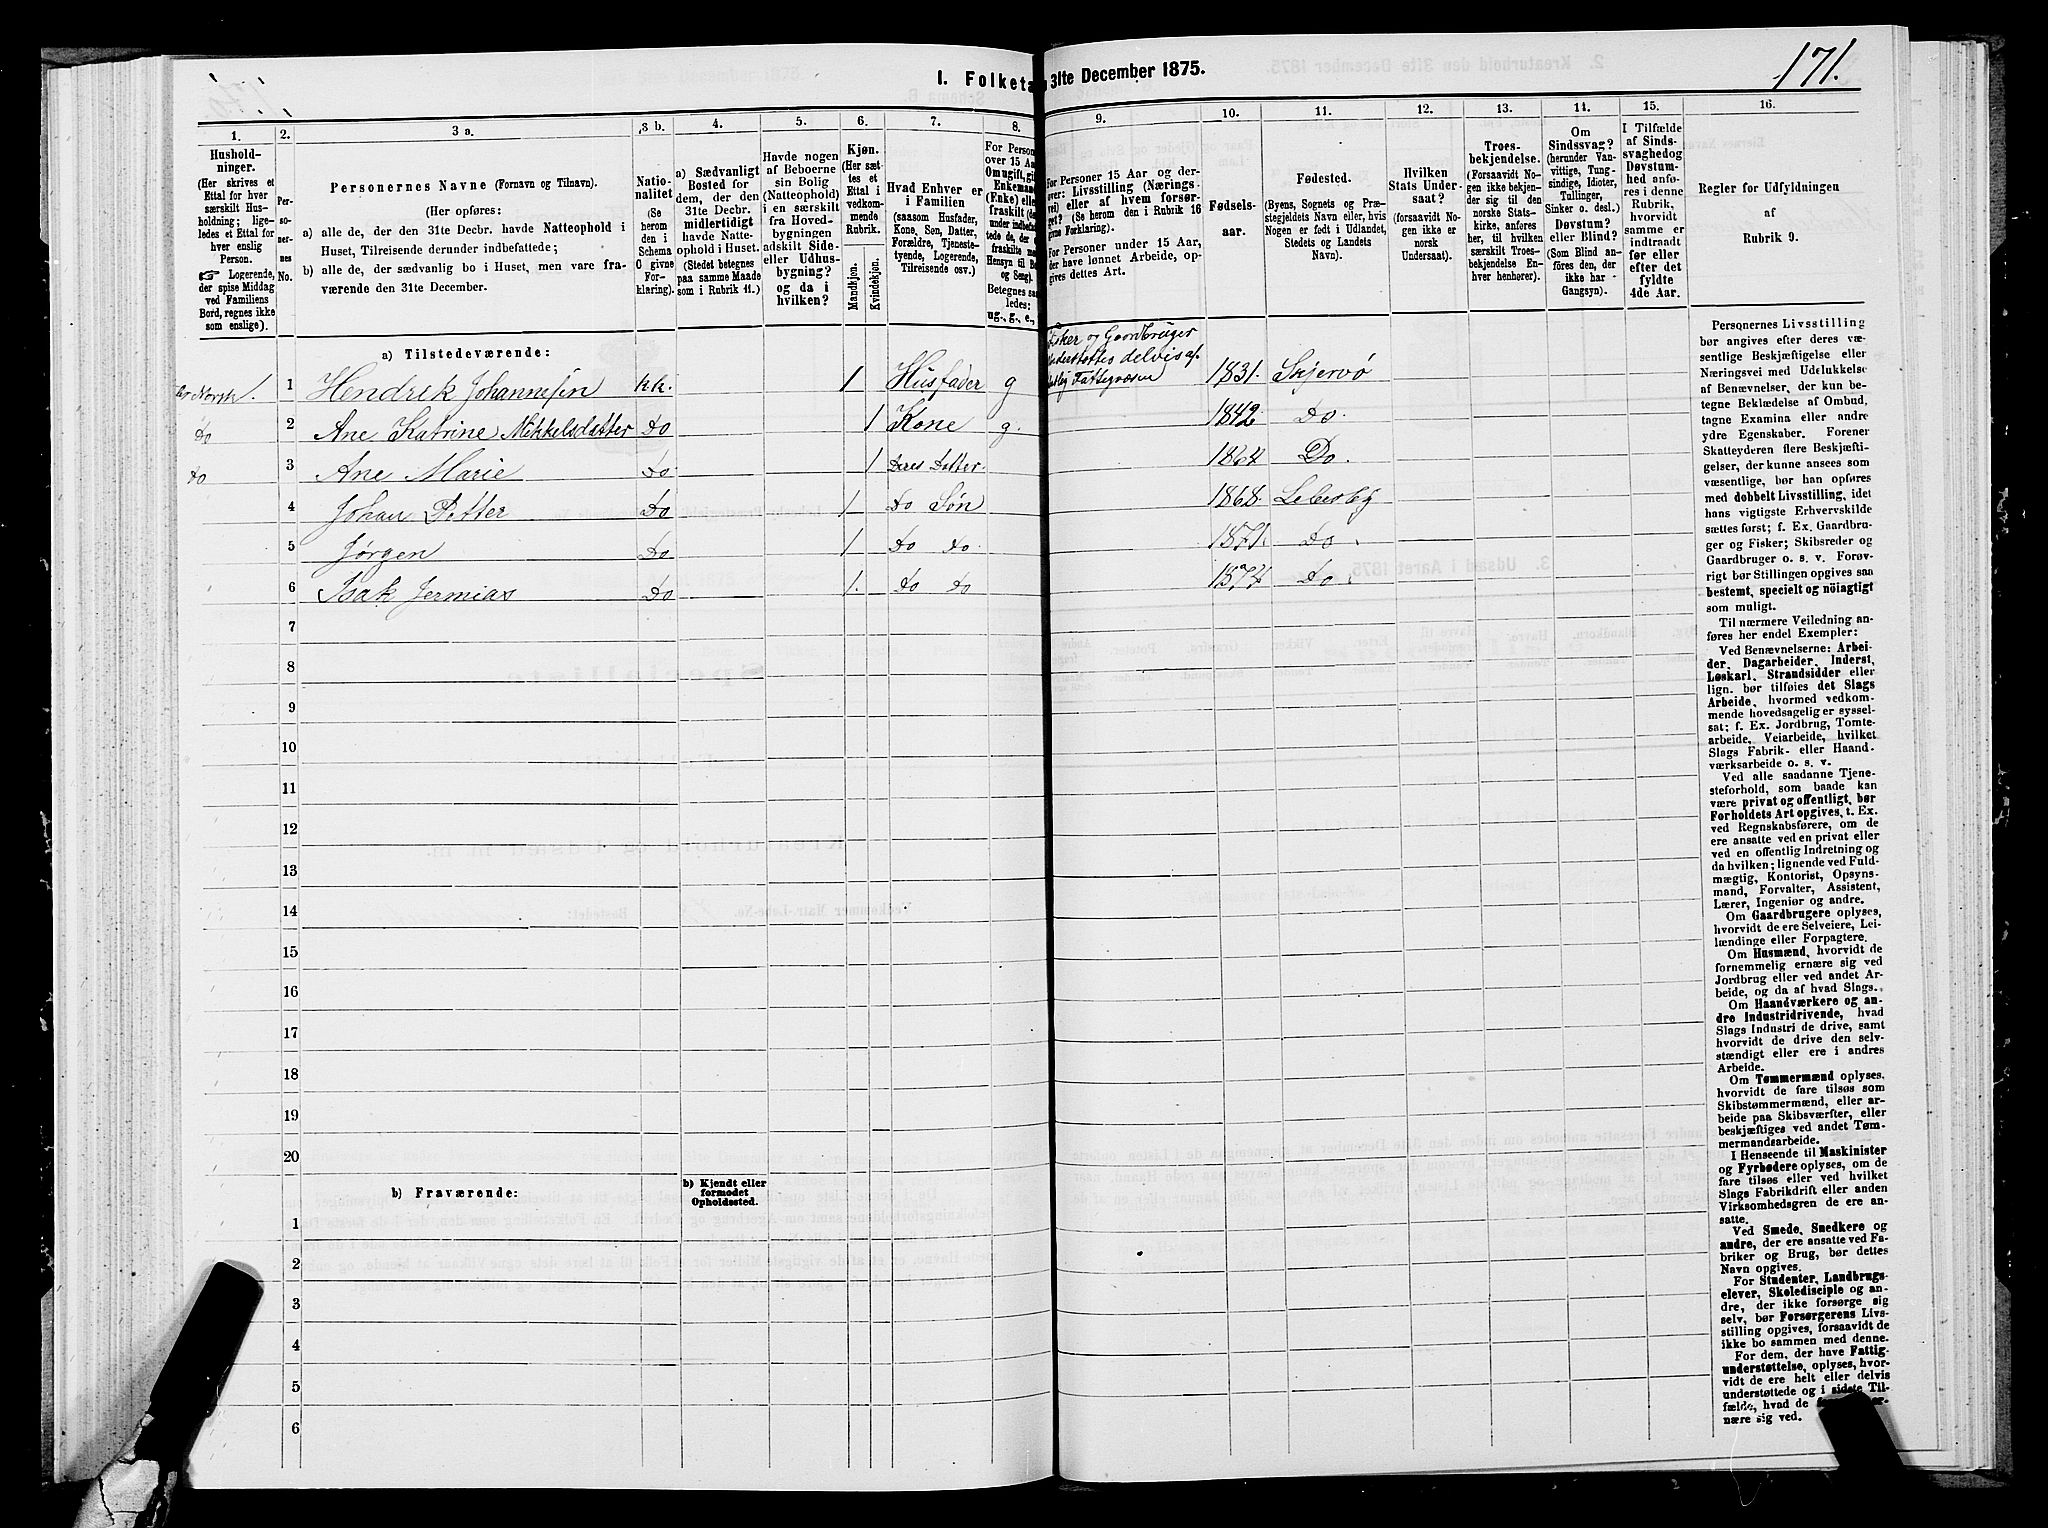 I. Folketa 31te December 1875.
171.
1.
Hushold-
ninger.
(Her skrives et
Ettal for hver
særskilt Hus-
holdning; lige-
ledes et Ettal for
hver enslig
Person.
☞ Logerende,
der spise Middag
ved Familiens
Bord, regnes ikke
som enslige).
2.
Per-
so-
ner-
nes
No.
3 a.
Personernes Navne (Fornavn og Tilnavn).
(Her opføres:
a) alle de, der den 31te Decbr. havde Natteophold i
Huset, Tilreisende derunder indbefattede;
b) alle de, der sædvanlig bo i Huset, men vare fra-
værende den 31te December.
3 b.
Natio-
nalitet
(Se
herom
den i
Schema
C givne
For-
klaring).
4.
a) Sædvanligt
Bosted for
dem, der den
31te Decbr.
midlertidigt
havde Natte-
ophold i Huset.
(Stedet betegnes
paa samme Maade
som i Rubrik 11.)
5.
Havde nogen
af Beboerne
sin Bolig
(Natteophold)
i en særskilt
fra Hoved-
bygningen
adskilt Side-
eller Udhus-
bygning?
og da i
hvilken?
6.
Kjøn.
(Her sæt-
tes et
Ettal i
vedkom-
mende
Rubrik.
Mandkjøn.
Kvindekjøn.
7.
Hvad Enhver er
i Familien
(saasom Husfader,
Kone, Søn, Datter,
Forældre, Tjeneste-
tyende, Logerende,
Tilreisende osv.)
8.
For Person
over 15 Aa
Om ugift, gif
Enkemand
(Enke) elle
fraskilt (de
under indbefat
tede de, der e
fraskilte med
Hensyn til B
og Seng).
Betegnes saa
ledes:
ug., g., e.,
9.
For Personer 15 Aar og der-
over: Livsstilling (Nærings-
vei) eller af hvem forsør-
get? (Se herom den i Rubrik 16
givne Forklaring).
For Personer under 15 Aar,
der have lønnet Arbeide, op-
gives dettes Art.
10.
Fødsels-
aar.
11.
Fødested.
(Byens, Sognets og Præ-
stegjeldets Navn eller, hvis
Nogen er født i Udlandet,
Stedets og Landets
Navn).
12.
Hvilken
Stats Under-
saat?
(forsaavidt No-
gen ikke er
norsk
Undersaat).
13.
Troes-
bekjendelse.
(Forsaavidt No-
gen ikke bekjen-
der sig til den
norske Stats-
kirke, anføres
her, til hvilken
særskilt Troes-
bekjendelse En-
hver henhører).
14.
Om
Sindssvag?
(herunder Van-
vittige, Tung-
sindige, Idioter,
Tullinger,
Sinker o. desl.)
Døvstum?
eller Blind?
(Som Blind an-
føres den, der
ikke har
Gangsyn).
15.
I Tilfælde
af Sinds-
svaghed og
Døvstum-
hed anfø-
res i denne
Rubrik,
hvorvidt
samme er
indtraadt
før eller
efter det
fyldte
4de Aar.
16.
Regler for Udfyldningen
af
Rubrik 9.
a) Tilstedeværende:
Norsk 1. 1 Hendrik Johannesen kk. 1 Husfader g Fisker og Gaardbruger
Understøttes delvis af
Fattigvæsen 1831. Skjervø
Do 2 Ane Katrine Mikkelsdatter Do 1 Kone g. 1842. Do.
Do 3 Ane Marie Do 1 Deres Datter. 1864 Do.
4 Johan Petter Do 1 Do Søn 1868. Lebesby
5 Jørgen Do 1 Do Do. 1871. Do.
6 Isak Jermias Do 1. Do Do 1874 Do.
7
8
9
10
11
12
13
14
15
16
17
18
19
20
b) Fraværende:
b) Kjendt eller
formodet
Opholdssted.
1
2
3
4
5
6
Personernes Livsstilling
bør angives efter deres væ-
sentlige Beskjæftigelse eller
Næringsvei med Udelukkelse
af Benævnelser, der kun be-
tegne Beklædelse af Ombud,
tagne Examina eller andre
ydre Egenskaber. Forener
Skatteyderen flere Beskjæfti-
gelser, der kunne ansees som
væsentlige, bør han opføres
med dobbelt Livsstilling, idet
hans vigtigste Erhvervskilde
sættes først; f. Ex. Gaardbru-
ger og Fisker; Skibsreder og
Gaardbruger o. s. v. Forøv-
rigt bør Stillingen opgives saa
bestemt, specielt og nöiagtigt
som muligt.
Til nærmere Veiledning an-
føres her endel Exempler:
Ved Benævnelserne: Arbei-
der, Dagarbeider, Inderst,
Løskarl, Strandsidder eller
lign. bør tilføies det Slags
Arbeide, hvormed vedkom-
mende hovedsagelig er syssel-
sat; f. Ex. Jordbrug, Tomte-
arbeide, Veiarbeide, hvilket
Slags Fabrik- eller Haand-
værksarbeide o. s. v.
Ved alle saadanne Tjene-
steforhold, som baade kan
være privat og offentligt, bør
Forholdets Art opgives, t. Ex.
ved Regnskabsførere, om de
ere ansatte ved en privat eller
ved en offentlig Indretning og
da hvilken; lignende ved Fuld-
mægtig, Kontorist, Opsyns-
mand, Forvalter, Assistent,
Lærer, Ingeniør og andre.
Om Gaardbrugere oplyses,
hvorvidt de ere Selveiere, Lei-
lændinge eller Forpagtere.
Om Husmænd, hvorvidt de
fornemmelig ernære sig ved
Jordbrug eller ved andet Ar-
beide, og da af hvad Slags.
Om Haandværkere og an-
dre Industridrivende, hvad
Slags Industri de drive, samt
hvorvidt de drive den selv-
stændigt eller ere i andres
Arbeide.
Om Tømmermænd oplyses,
hvorvidt de fare tilsøs som
Skibstømmermænd, eller ar-
beide paa Skibsværfter, eller
beskjæftiges ved andet Tøm-
mermandsarbeide.
I Henseende til Maskinister
og Fyrbødere oplyses, om de
fare tilsøs eller ved hvilket
Slags Fabrikdrift eller anden
Virksomhedsgren de ere an-
satte.
Ved Smede, Snedkere og
andre, der ere ansatte ved Fa-
briker og Brug, bør dettes
Navn opgives.
For Studenter, Landbrugs-
elever, Skoledisciple og an-
dre, der ikke forsørge sig
selv, bør Forsørgerens Livs-
stilling opgives, forsaavidt de
ikke bo sammen med denne.
For dem, der have Fattig-
understøttelse, oplyses, hvor-
vidt de ere helt eller delvis
understøttede og i sidste Til-
fælde, hvad de
nære sig ved.